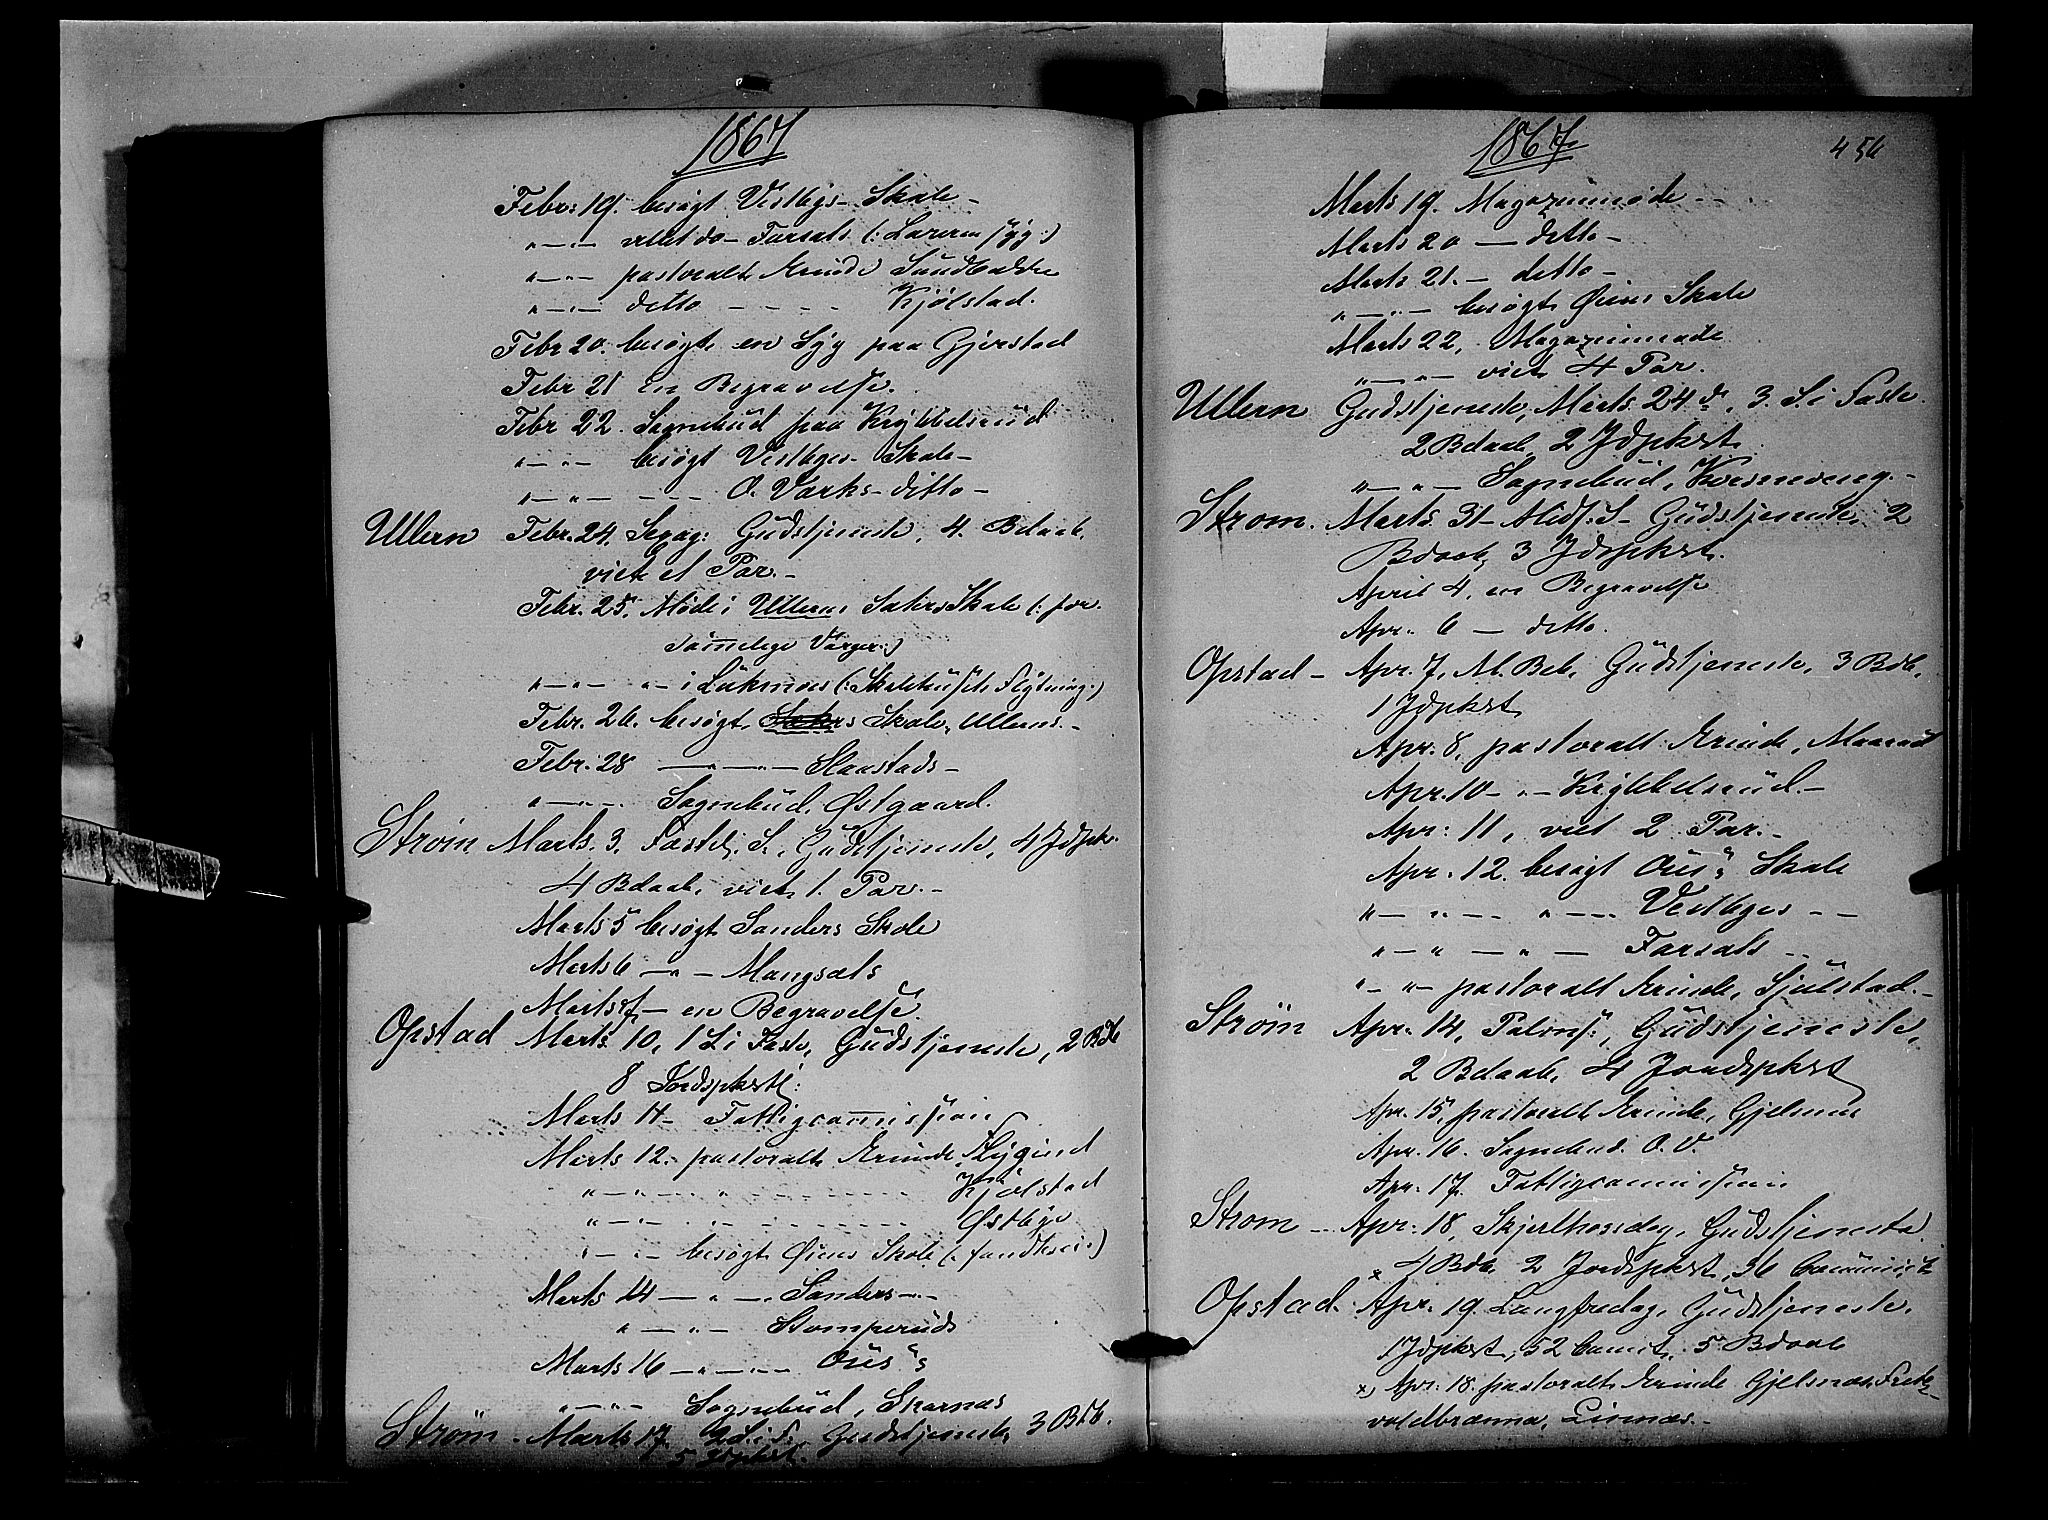 1867
Febr: 19. besøgt Vestbys Skole -
" — " — vilet do - Forsals (: Læreren syg :)
" — " — pastoralt Ærinde
" — " — ditto - - - - Kjølstad.
Febr 20. besøgt en Syg paa Gjerstad
Febr 21 en Begravelse.
Febr 22. Sognebud paa Krybbelsrud
" — " — besøgt Vestbyes - Skole -
" — " — - - - O. Værks - ditto -
Ullern Febr. 24, Sexag: Gudstjeneste, 4. Bdaab,
viet et Par. -
Febr. 25. Møde i Ullerns Skole (: for
samtlige Værger :)
" — " — " — i Luknæs (: Skolehusets Flytning :)
Febr. 26. besøgt Skole, Ullerns. -
Febr. 28 — " — " — Slaastads -
" — " — Sognebud, Østgaard.
Strøm Marts. 3. Fastel. S., Gudstjeneste, 4 Jdpk.
4 Bdaab, viet 1. Par. -
Marts 5 besøgt Sanders Skole
Marts 6 — " — Mangsæls
Marts 7 — en Begravelse.
Opstad Marts 10, 1 S. i Faste, Gudstjeneste, 2 Bdb
8 Jordspkst:
Marts 11 - Fattigcommission
Marts 12. pastoralt Ærinde,
" — " — " - - - - - Kjølstad
" — " — " - - - - - Østbye
" — " — besøgt Øiens Skole
Marts 14 — " — Sanders —
" — " — Stomperuds
Marts 16 — " — " — Ous's
" — " — Sognebud, Skarnæs
Strøm - Marts 17. 2 S. i F. Gudstjeneste, 3 Bdb.
5 Jdpkst.
1867 456
Marts 19. Magazinmøde - -
Marts 20 — ditto -
Marts 21. - ditto -
" — " — besøgt Øiens Skole
Marts 22, Magazinmøde
" — " — viet 4 Par.
Ullern Gudstjeneste, Marts 24de, 3. S. i Faste.
2 Bdaab, 2 Jdpkst.
" — " — Sognebud, Kvesmoeng. -
Strøm. Marts 31 - Midf: S - Gudstjeneste, 2
Bdaab, 3 Jdspkst.
April 4, en Begravelse
Apr. 6 — ditto.
Opstad - Apr. 7, M. Beb. Gudstjeneste, 3 Bdb,
1 Jdpkst
Apr. 8, pastoralt Ærinde, Maarud
Apr. 10 - " - Krybbelsrud. -
Apr: 11, viet 2 Par. -
Apr. 12. besøgt Ous's Skole
" — " — " — Vestbyes - -
" — " — " — Forsals - -
" — " — pastoralt Ærinde, Sjulstad. -
Strøm Apr. 14, Palms:, Gudstjeneste,
2 Bdaab, 4 Jordspkst
Apr. 15, pastoralt Ærinde, Gjelsnæs
Apr. 16. Sognebud. O. V.
Apr. 17. Fattigcommission
Strøm - Apr. 18, Skjærthorsdag, Gudstjeneste.
x 4 Bdb, 2 Jordspkst, 36 Communic.
Opstad. Apr. 19. Langfredag, Gudstjeneste,
1 Jdpkst, 52 Comt., 5 Bdaab
x) Apr: 18. pastoralt Ærinde Gjelsnæs, Freds-
voldbrænna, Linnæs. -